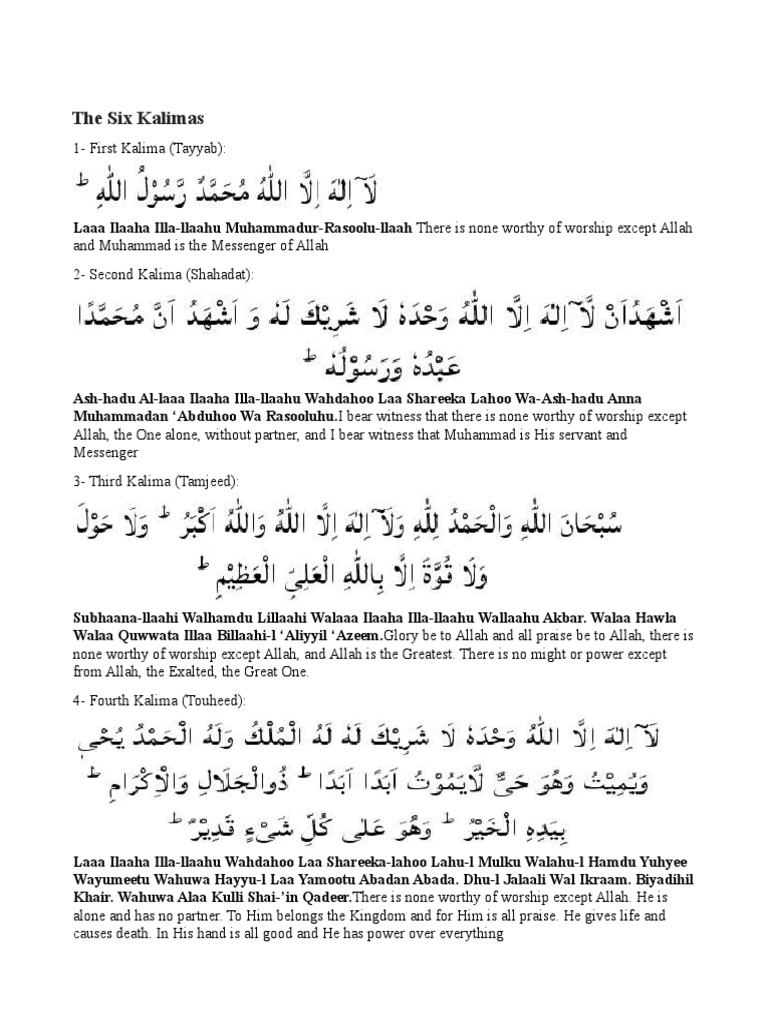 The Six Kalimas
1- First Kalima (Tayyab):
لَآ اِلٰهَ اِلَّا اللّٰهُ مُحَمَّدٌ رَّسُوْلُ اللّٰهِ ؕ
Laaa Ilaaha Illa-llaahu Muhammadur-Rasoolu-llaah There is none worthy of worship except Allah
and Muhammad is the Messenger of Allah
2- Second Kalima (Shahadat):
اَشْهَدُاَنْ لَّآ اِلٰهَ اِلَّا اللّٰهُ وَحْدَهٗ لَا شَرِيْكَ لَهٗ وَ اَشْهَدُ اَنَّ مُحَمَّدًا
عَبْدُهٗ وَرَسُوْلُهٗ ؕ
Ash-hadu Al-laaa Ilaaha Illa-llaahu Wahdahoo Laa Shareeka Lahoo Wa-Ash-hadu Anna
Muhammadan ‘Abduhoo Wa Rasooluhu.I bear witness that there is none worthy of worship except
Allah, the One alone, without partner, and I bear witness that Muhammad is His servant and
Messenger
3- Third Kalima (Tamjeed):
سُبْحَانَ اللّٰهِ وَالْحَمْدُ لِلّٰهِ وَلَآ اِلٰهَ اِلَّا اللّٰهُ وَاللّٰهُ اَكْبَرُ ؕ وَلَا حَوْلَ
وَلَا قُوَّةَ اِلَّا بِاللّٰهِ الْعَلِيِّ الْعَظِيْمِ ؕ
Subhaana-llaahi Walhamdu Lillaahi Walaaa Ilaaha Illa-llaahu Wallaahu Akbar. Walaa Hawla
Walaa Quwwata Illaa Billaahi-l ‘Aliyyil ‘Azeem.Glory be to Allah and all praise be to Allah, there is
none worthy of worship except Allah, and Allah is the Greatest. There is no might or power except
from Allah, the Exalted, the Great One.
4- Fourth Kalima (Touheed):
لَآ اِلٰهَ اِلَّا اللّٰهُ وَحْدَهٗ لَا شَرِيْكَ لَهٗ لَهُ الْمُلْكُ وَلَهُ الْحَمْدُ يُحْيٖ
وَيُمِيْتُ وَهُوَ حَيٌّ لَّايَمُوْتُ اَبَدًا اَبَدًا ؕ ذُوالْجَلَالِ وَالْاِكْرَامِ ؕ
بِيَدِهِ الْخَيْرُ ؕ وَهُوَ عَلٰى كُلِّ شَيْءٍ قَدِيْرٌ ؕ
Laaa Ilaaha Illa-llaahu Wahdahoo Laa Shareeka-lahoo Lahu-l Mulku Walahu-l Hamdu Yuhyee
Wayumeetu Wahuwa Hayyu-l Laa Yamootu Abadan Abada. Dhu-l Jalaali Wal Ikraam. Biyadihil
Khair. Wahuwa Alaa Kulli Shai-’in Qadeer.There is none worthy of worship except Allah. He is
alone and has no partner. To Him belongs the Kingdom and for Him is all praise. He gives life and
causes death. In His hand is all good and He has power over everything